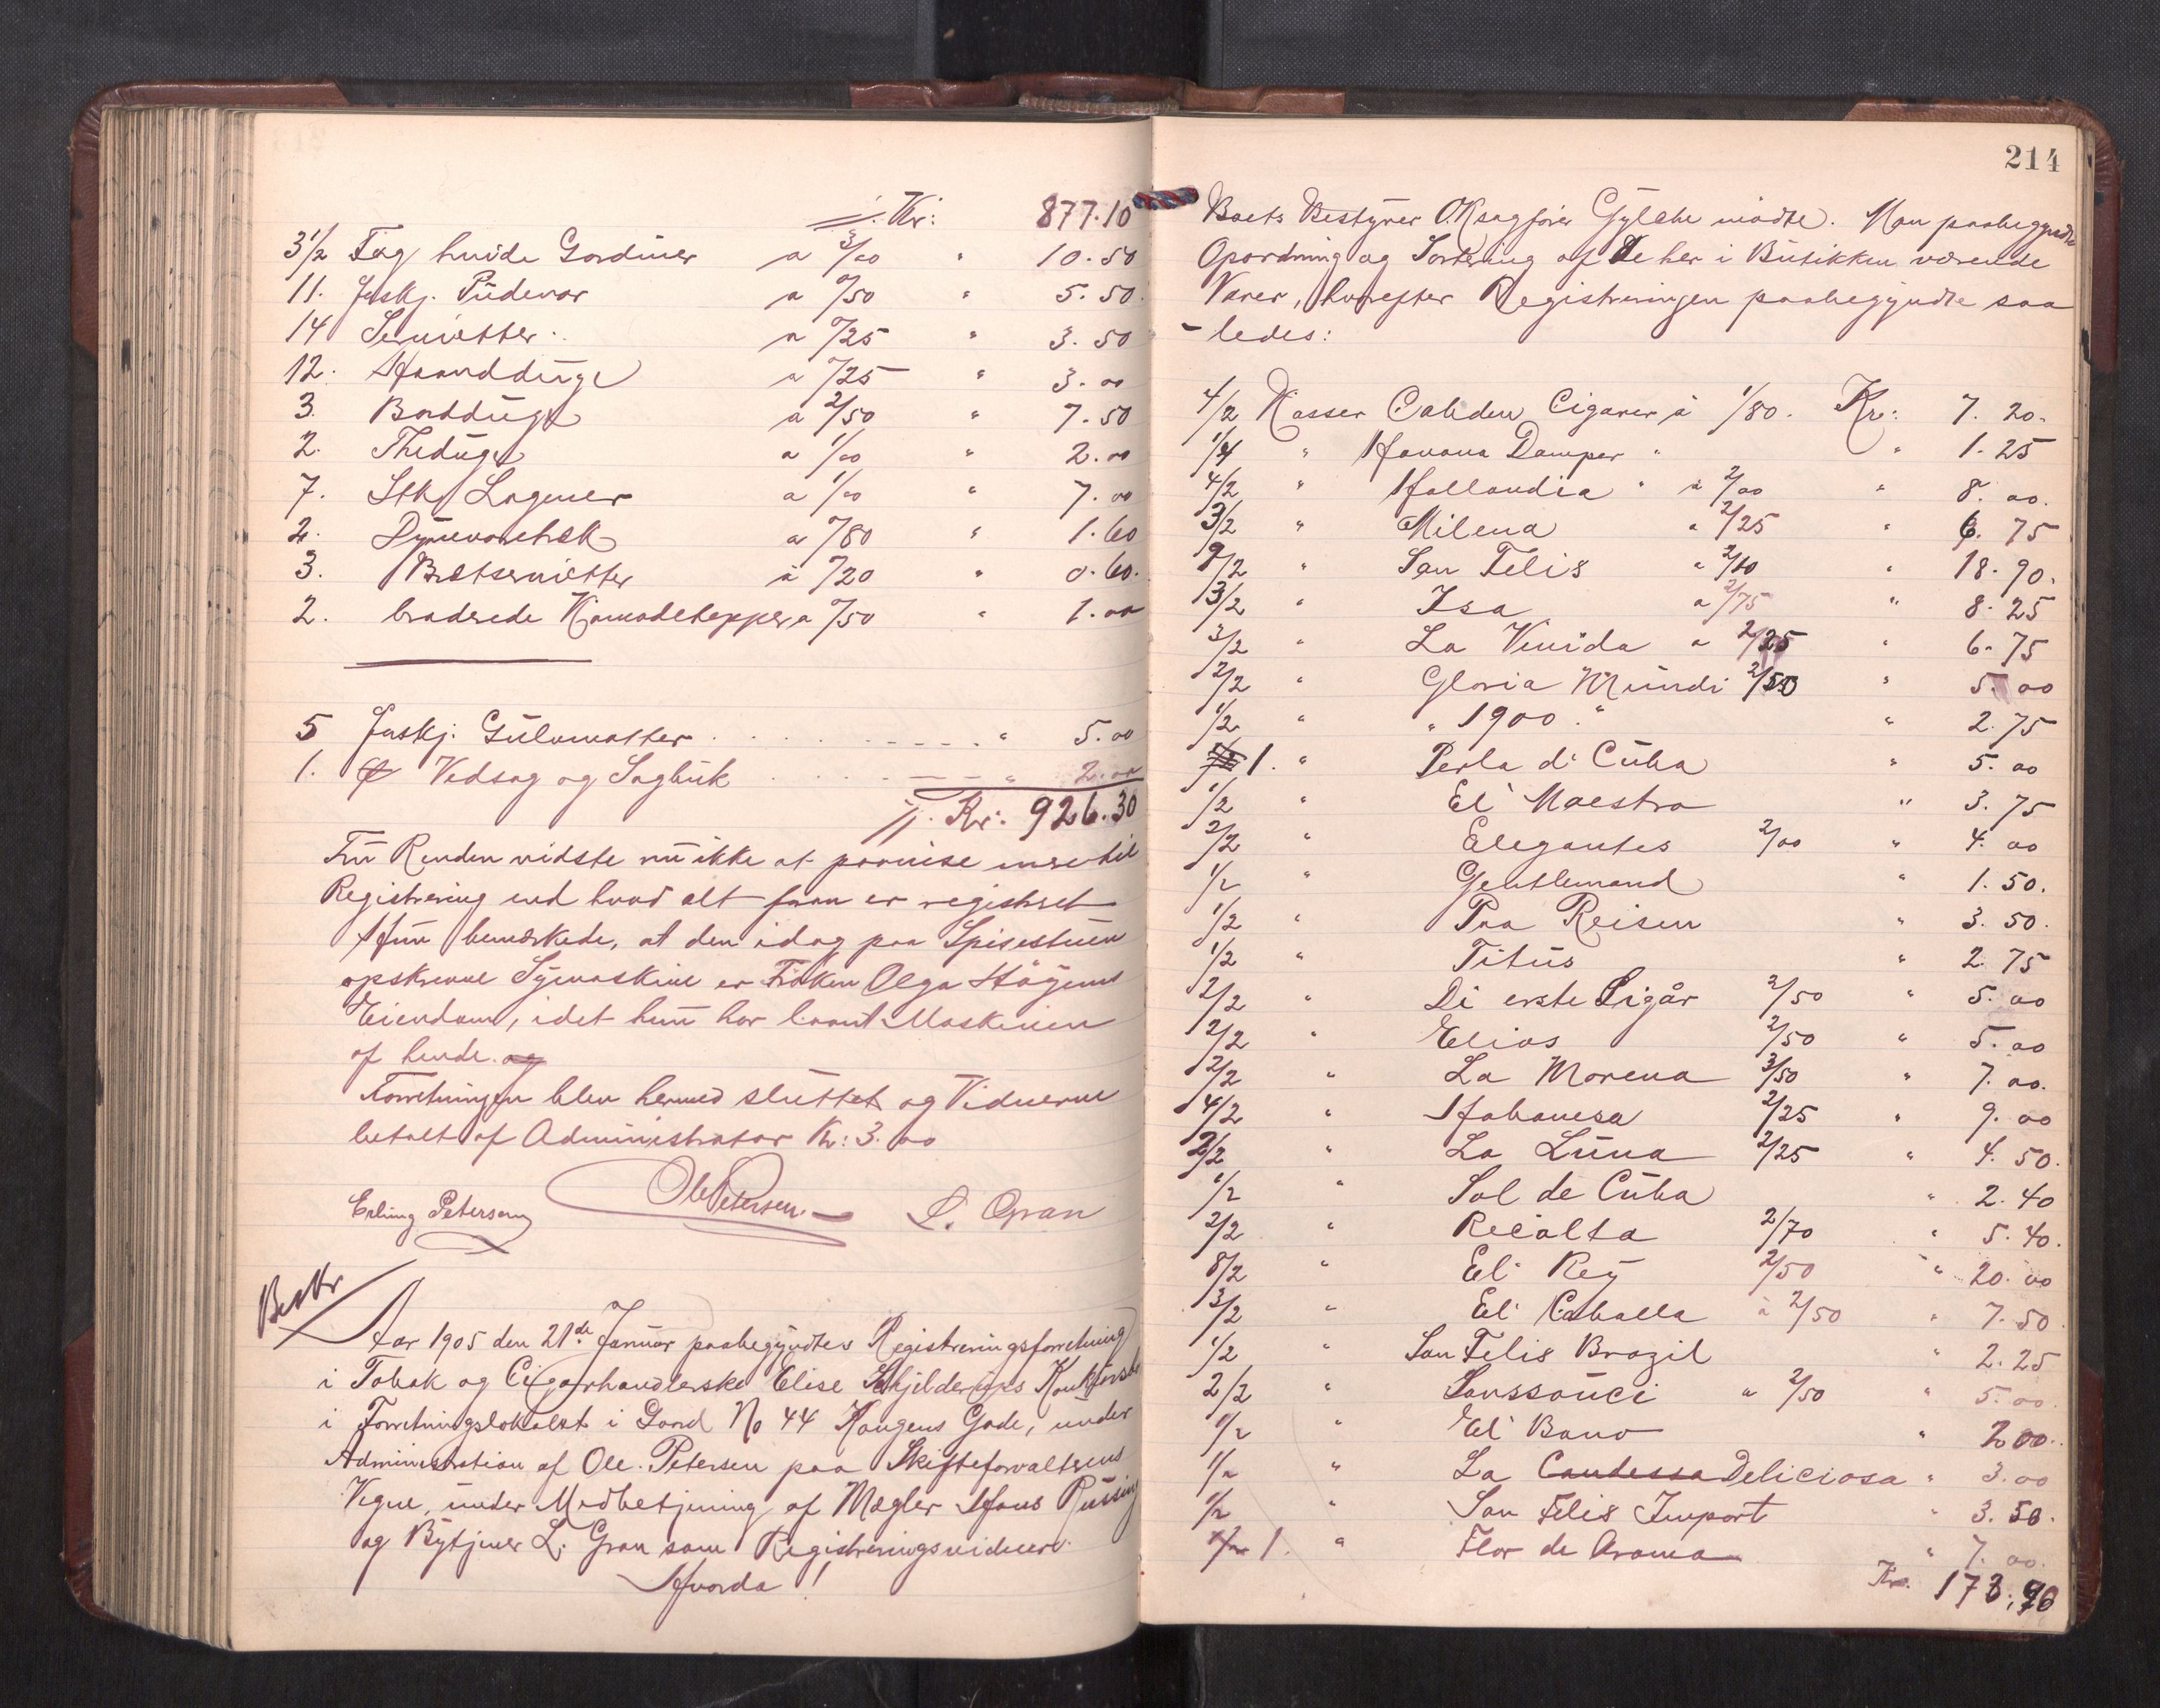 ./. Kr: 877.10
3½ Fag hvide Gardiner a 3/00 " 10.50
11. forskj. Püdevar a 0/50 " 5.50
14 Servietter a 0/25 " 3.50
12. Haanddüge a 0/25 " 3.00
3. Borddüge a 2/50 " 7.50
2. Thedüge a 1/00 " 2.00
7. Stk Lagener a 1/00 " 7.00
2. Dynevarstræk a 0/80 " 1.60
3. Brætservietter à 0/20 " 0.60.
2. broderede Kamodetepper a 0/50 " 1.00
5 forskj. Gülvmatter " 5.00
1. Vedsag og Sagbuk " 2.00
//. Kr: 926.30
Frü Randen vidste nü ikke at paavise mere til
Registrering end hvad alt foran er registret
Hün bemærkede, at den idag paa Spisestüen
opskrevne Symaskine er Frøken Olga Høyems
Eiendom, idet hün har laant Maskinen
af hende. og
Forretningen blev hermed sluttet og Vidnerne
betalt af Administrator Kr: 3.00
Erling Petersen Ole Petersen. L. Gran
Aar 1905 den 21de Januar paabegyndtes Registreringsforretning
i Tobak og Cigarhandlerske Elise Schjelderups Konkursbo
i Forretningslokalet i Gaard No 44 Kongens Gade, under
Administration af Ole Petersen paa Skifteforvalterens
Vegne, under Medbetjening af Mægler Hans Rüssing
og Bytjener L. Gran som Registreringsvidner.
Hvorda!
214
Boets Bestyrer O.R.sagfører Gylche mødte. Man paabegyndte
Opordning og Sortering af de her i Butikken værende
Varer, hvorefter Registreringen paabegyndte saa
- ledes:
4/2 Kasser Cabden Cigarer à 1/80. Kr: 7.20.
1/4 " Havana Damper " " 1.25
4/2 " Hollandia " à 2/00 " 8.00.
3/2 " Milena " 2/25 " 6.75
9/2 " San Felis " 2/10 " 18.90.
3/2 " Isa a 2/75 " 8.25
3/2 " La Venida a 2/25 " 6.75
2/2 " Gloria Mündi 2/50 " 5.00
1/2 " " 1900. " " 2.75
1. " Perla d' Cüba " 5.00
1/2 " El' Maestro " 3.75
2/2 " Elegantes 2/00 " 4.00
1/2 " Gentlemand " 1.50.
1/2 " Paa Reisen " 3.50.
1/2 " Titüs " 2.75
2/2 " Di erste Sigår 2/50 " 5.00
2/2 " Elios 2/50 " 5.00
2/2 " La Morena 3/50 " 7.00.
4/2 " Habanesa 2/25 " 9.00
2/2 " La Lüna 2/25 " 4.50.
1/2 " Sol de Cüba " 2.40
2/2 " Recolta 2/70 " 5.40.
8/2 " El' Rey 2/50 " 20.00
3/2 " El' Caballa à 2/50 " 7.50
1/2 " San Felis Brazil " 2.25
2/2 " Sanssoüci " 2/50 " 5.00.
1/2 " El' Bano " 2.00.
1/2 " La Candessa Deliciosa " 3.00
1/2 " San Felis Import " 3.50.
1. " Flor de Aroma " 7.00.
Kr.